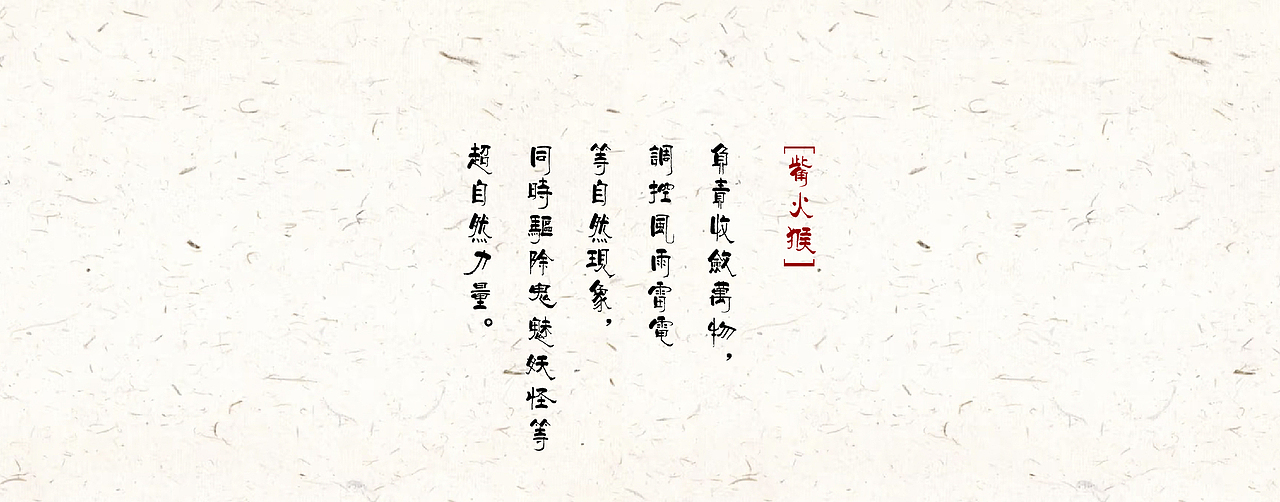 [觜火猴]
負責收斂萬物，
調控風雨雷電
等自然現象，
同時驅除鬼魅妖怪等
超自然力量。